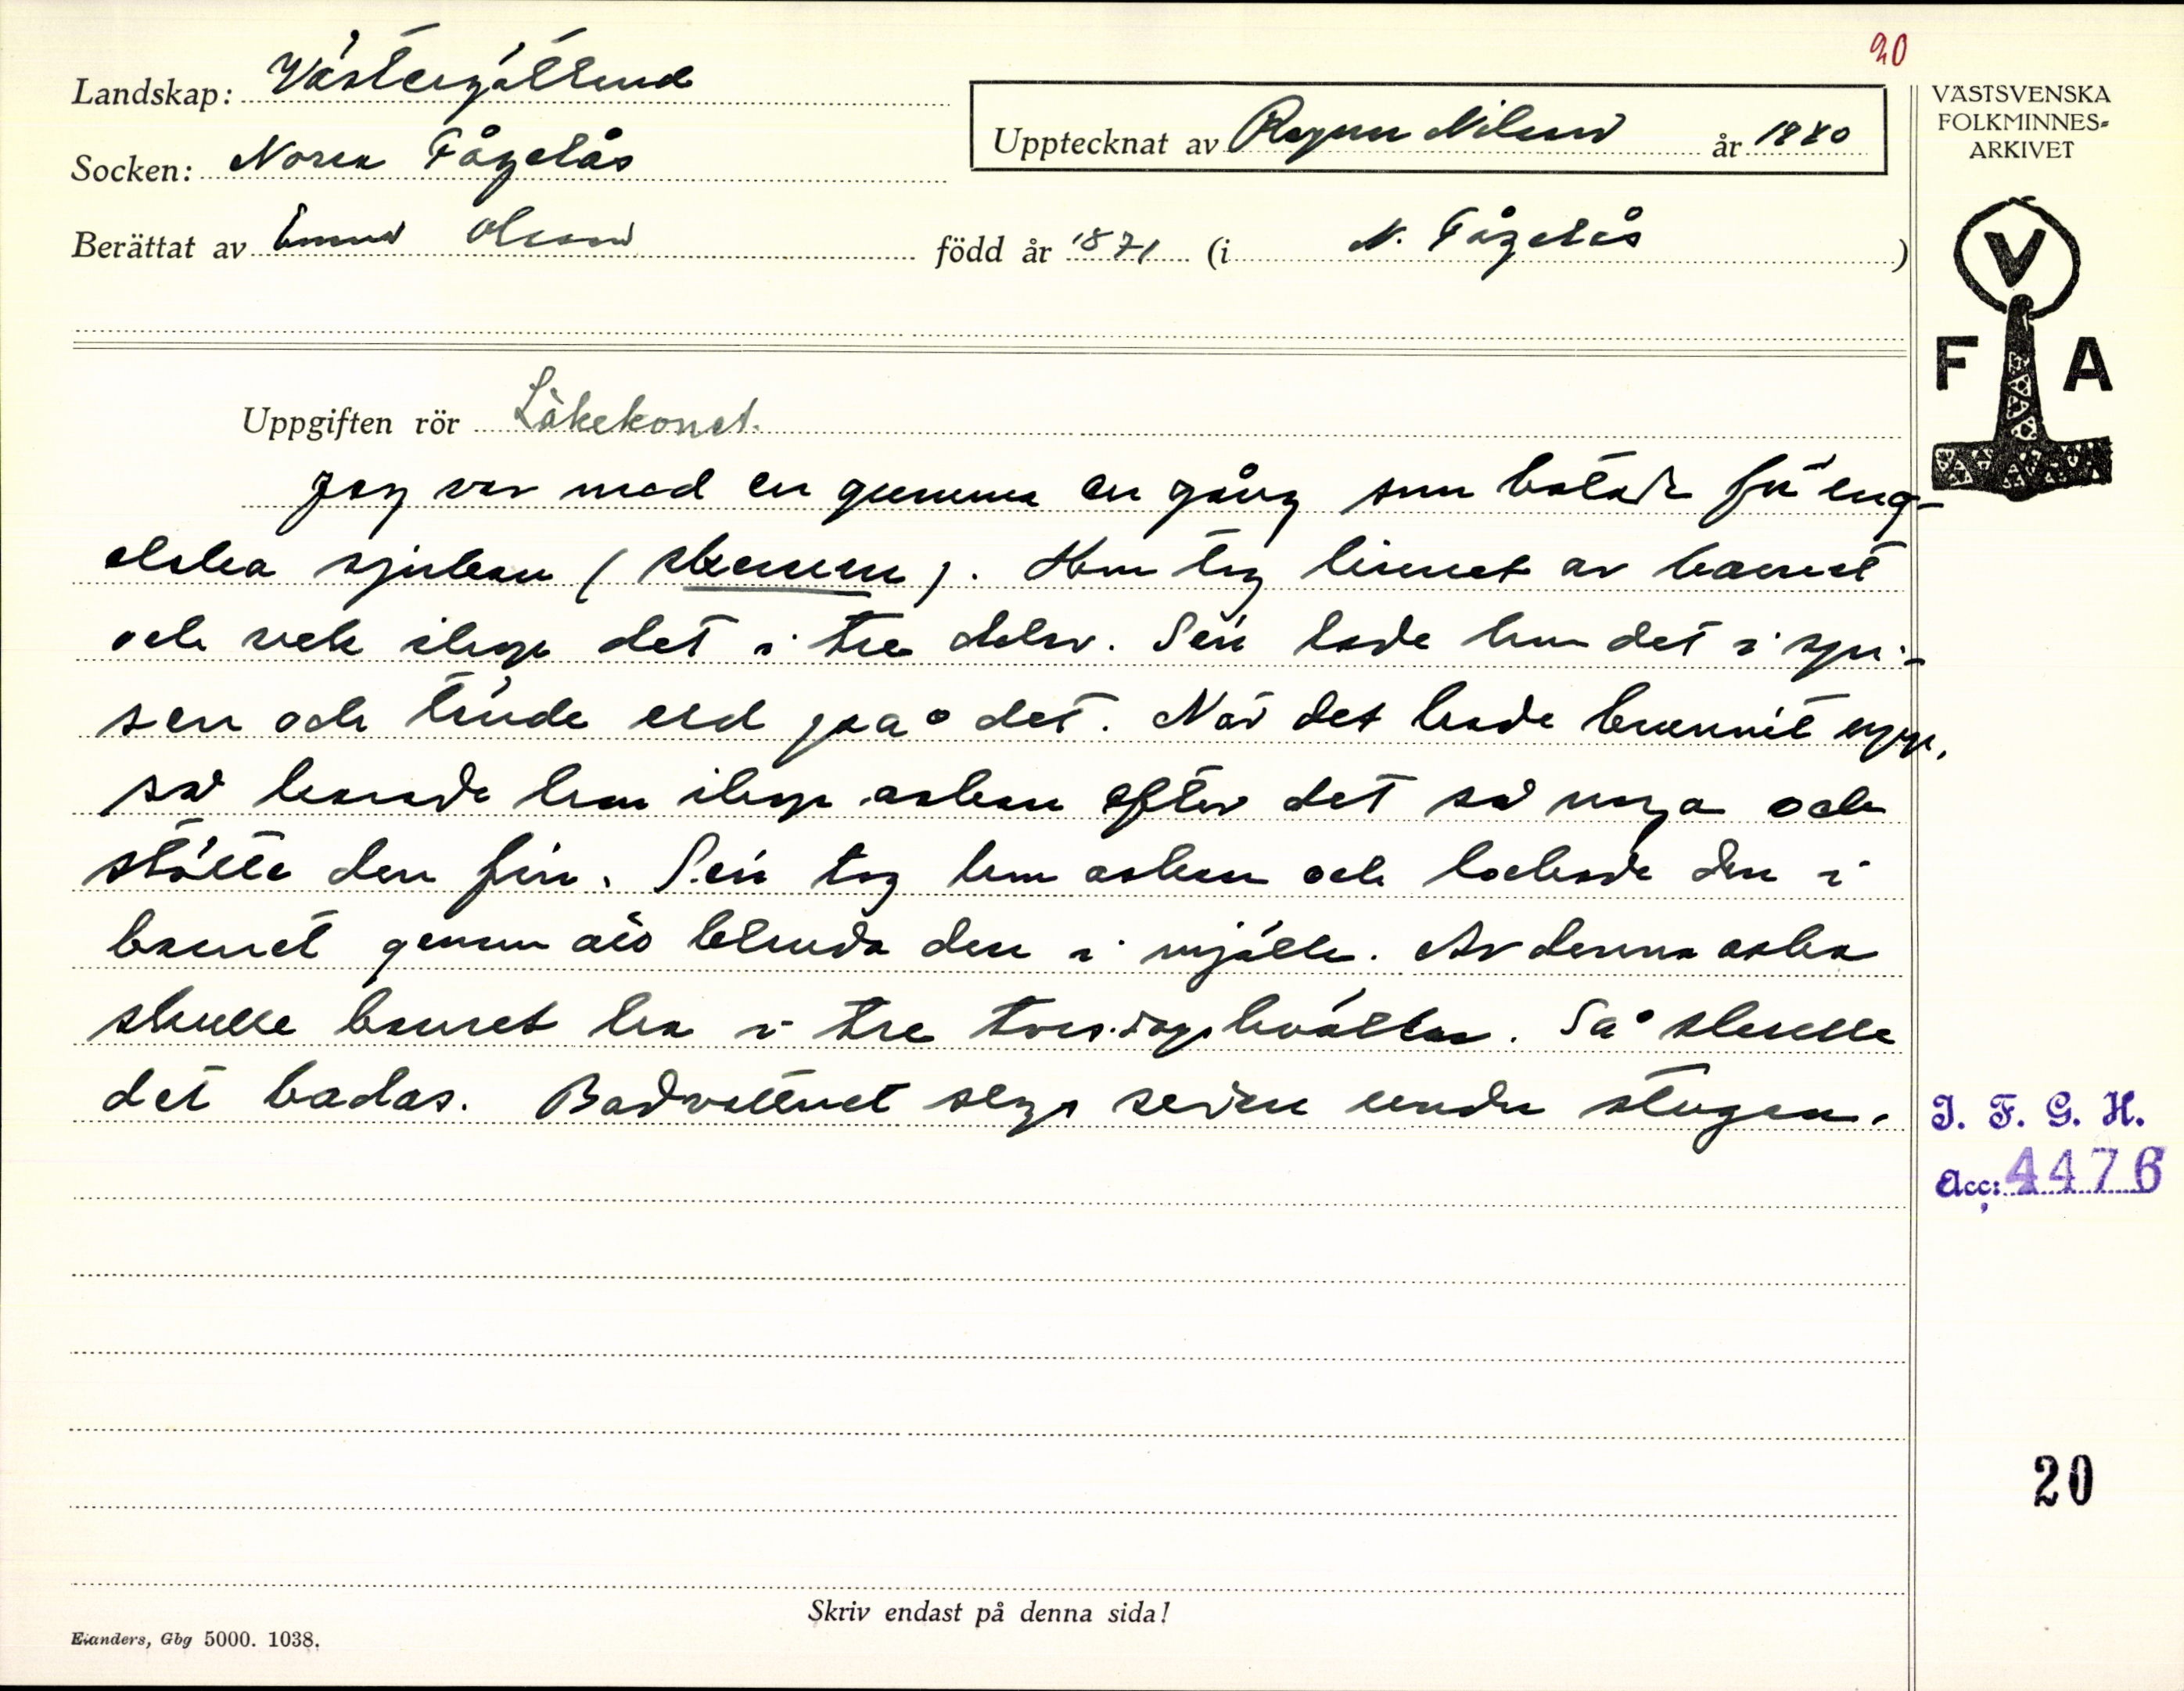 20
Landskap: Västergötland
Upptecknat av Ragnar Nilsson år 1940
VÄSTSVENSKA
FOLKMINNES-
ARKIVET
Socken: Norra Fågelås
Berättat av Emma Olsson född år 1871 (i N. Fågelås)
V
F A
Uppgiften rör Läkekonst.
Jag var med en gumma en gång som botade för eng-
elska sjukan (skerven). Hon tog linnet av barnet
och vek ihop det i tre delar. Sen lade hon det i spi-
sen och tände eld på det. När det hade brunnit upp,
så kasade hon ihop askan efter det så noga och
stötte den fin. Sen tog hon askan och lockade den i
barnet genom att blanda den i mjölk. Av denna aska
skulle barnet ha i tre torsdagskvällar. Så skulle
det badas. Badvattnet slogs sedan under stugan.
I. F. G. H.
Acc: 4476
20
Skriv endast på denna sida!
Elanders, Gbg 5000. 1038.